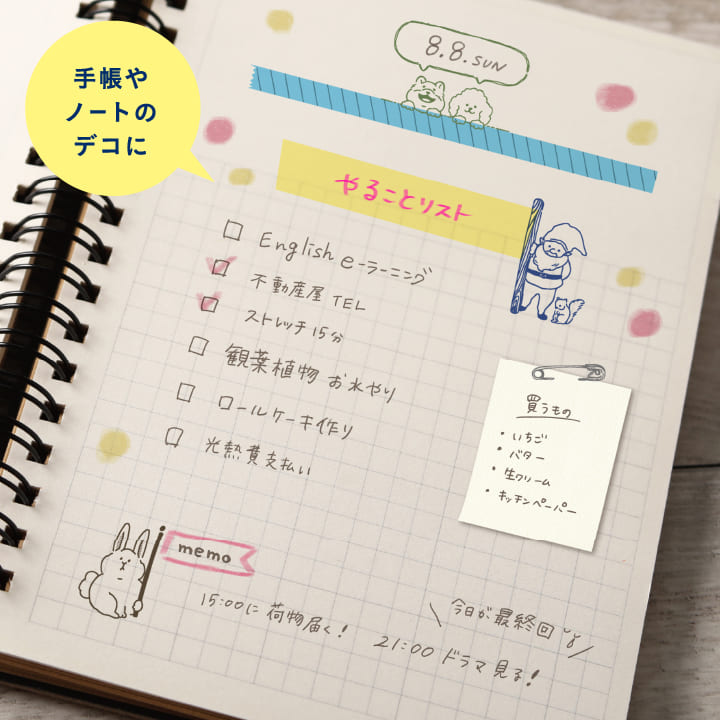 手帳や
ノートの
デコに
8.8.SUN
やることリスト
English e-ラーニング
不動産屋 TEL
ストレッチ 15分
観葉植物 お水やり
ロールケーキ作り
光熱費支払い
買うもの
・いちご
・バター
・生クリーム
・キッチンペーパー
memo
15:00に 荷物届く!
\今日が最終回/
21:00 ドラマ見る!